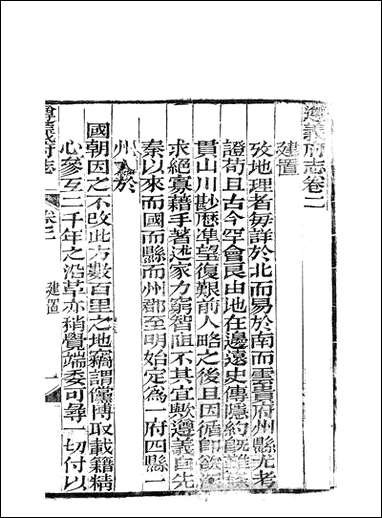 遵義府志卷二
建置
攷地理者每詳於北而易於南而雲貴府州縣尤考
證荀且古今罕會良由地在邊遠史傳隱約旣難
貫山川勘歷凖望復艱前人略之後且因循卽欲
求絕寡藉手著述家力窮智阻不其宜歟遵義自先
秦以來而國而縣而州郡至明始定為一府四縣一
州於
國朝因之不改此方數百里之地竊謂儻博取載籍精
心參互二千年之沿革亦稍覺端委可尋一切付以
遵義府志
卷二
建置
一